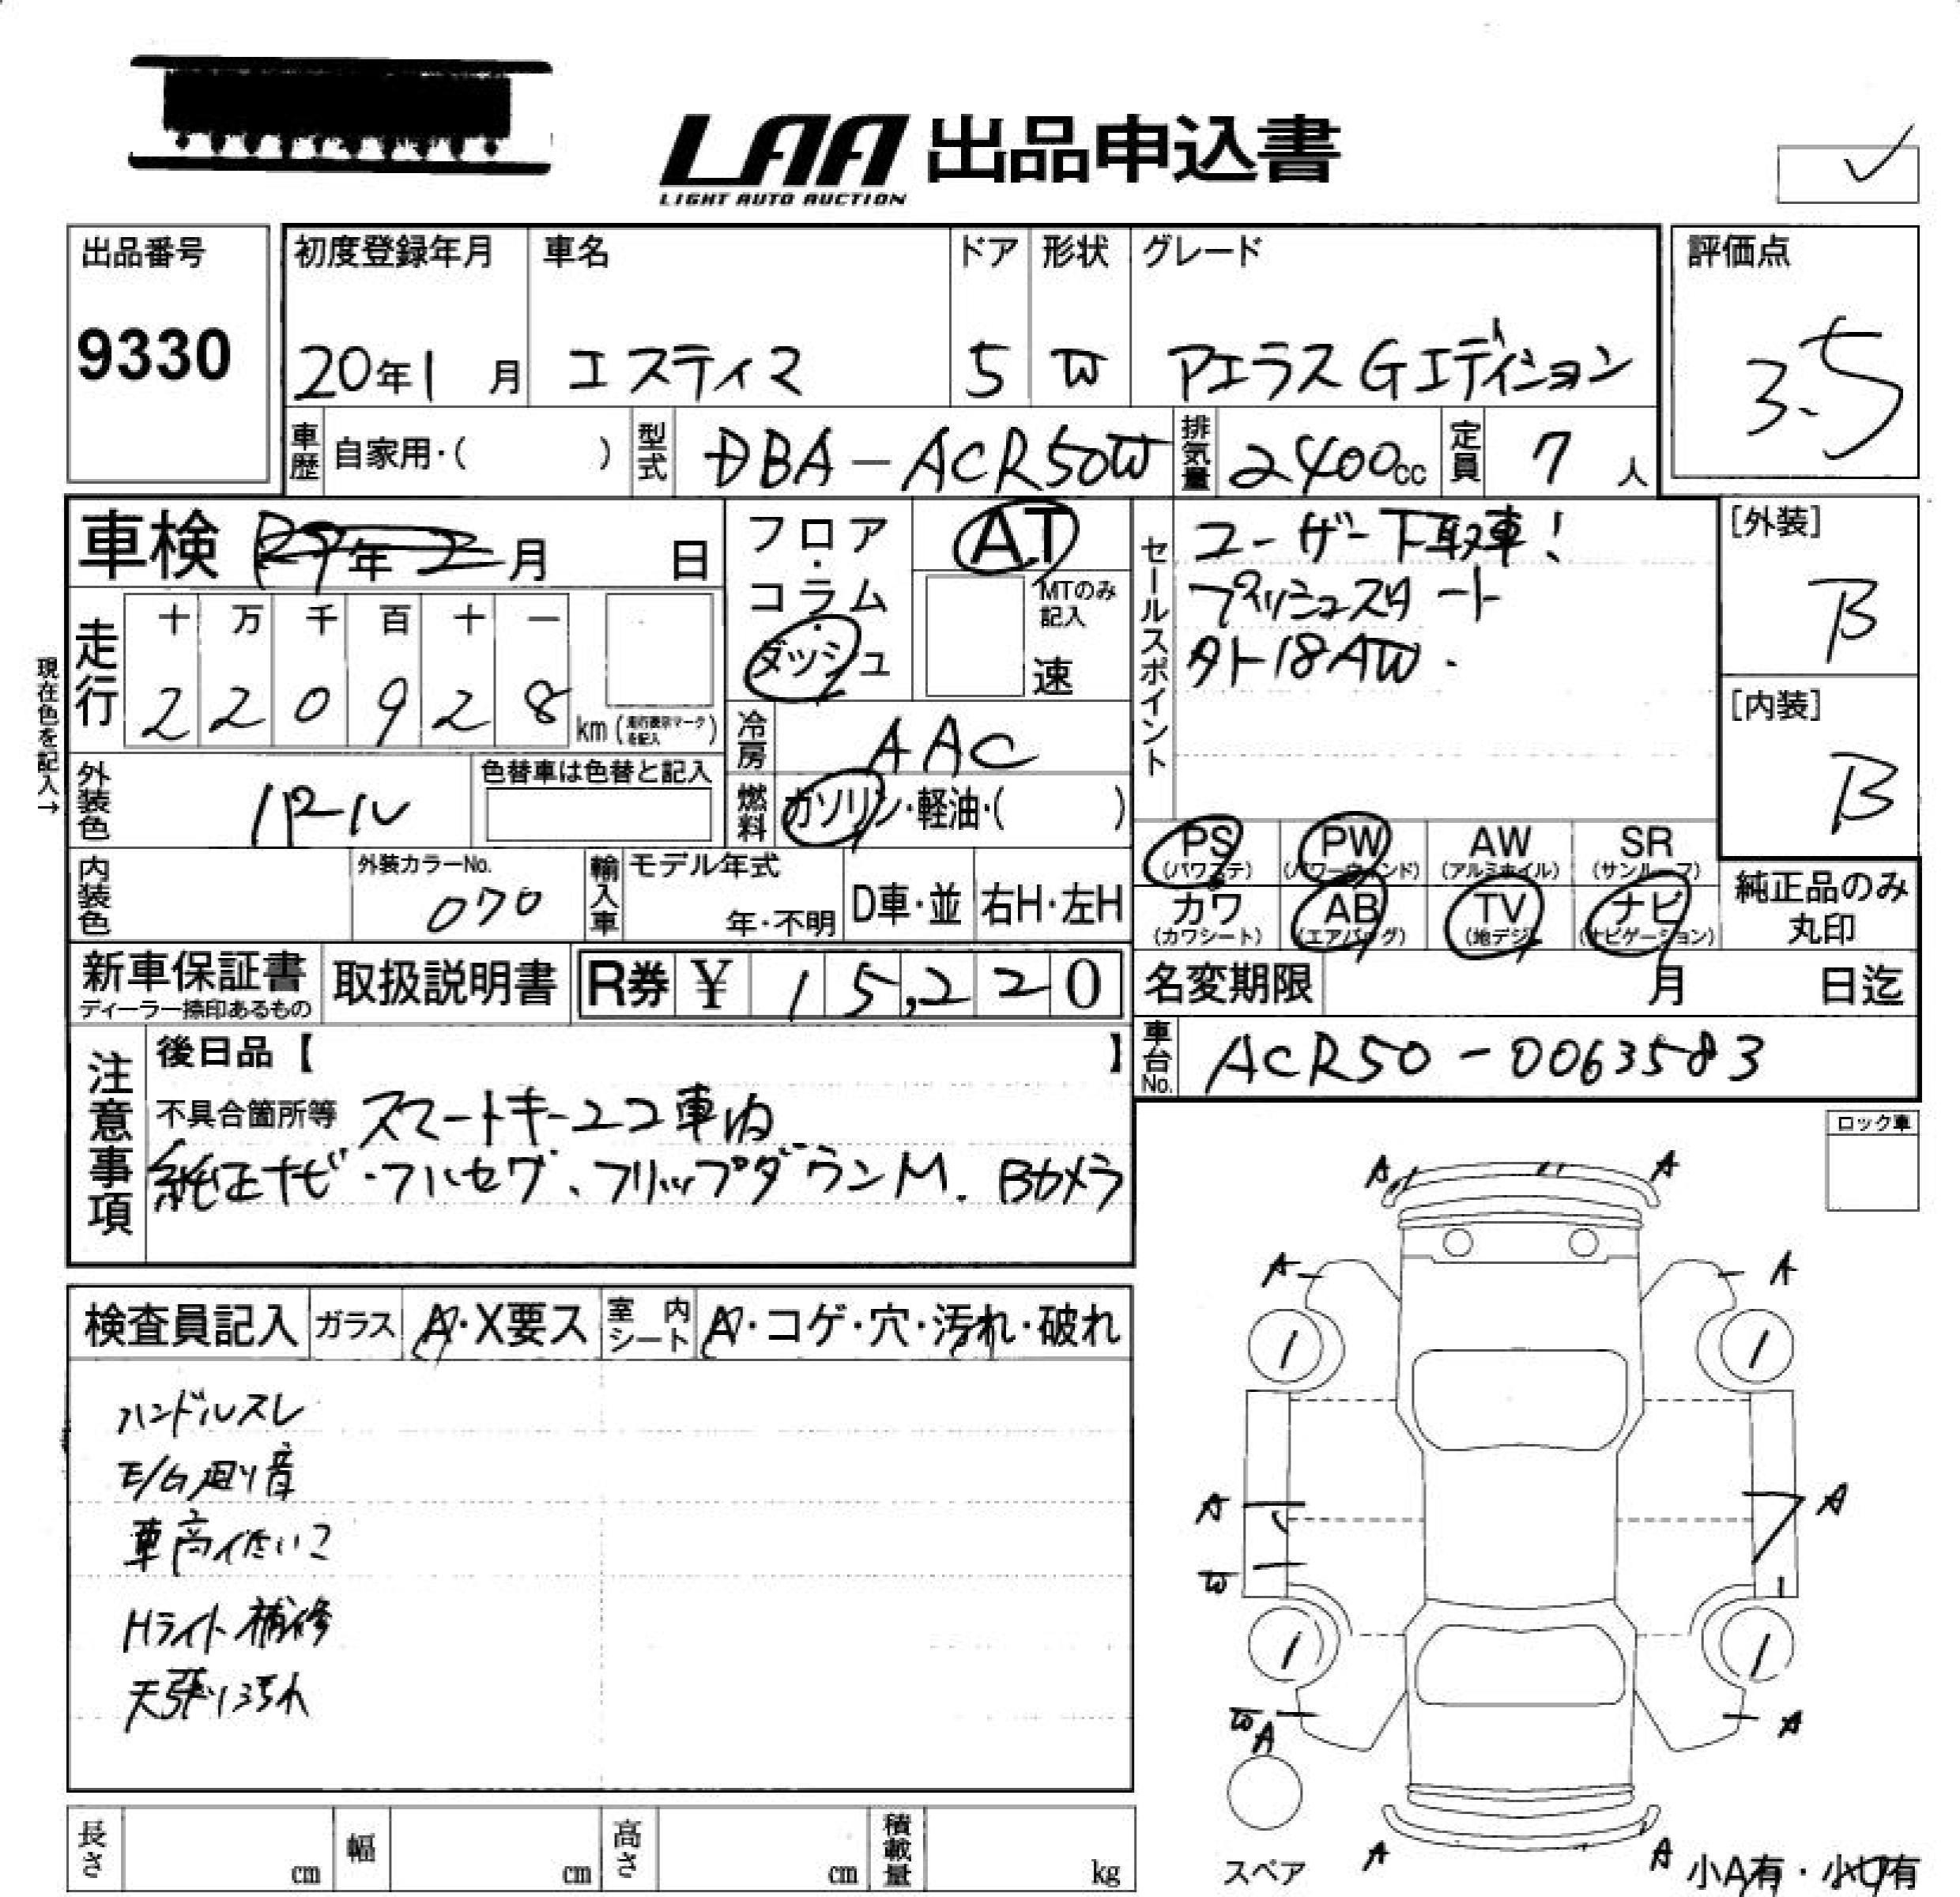 LAA 出品申込書
LIGHT AUTO AUCTION
出品番号
9330
初度登録年月
20年1月
車名
エスティマ
ドア
5
形状
W
グレード
アエラス Gエディション
評価点
3.5
車歴
自家用・( )
型式
DBA-ACR50W
排気量
2400cc
定員
7人
車検
年2月 日
フロア・コラム・ダッシュ
AT
MTのみ記入
速
セールスポイント
ユーザー下取車!
プッシュスタート
外18AW.
[外装]
B
[内装]
B
現在色を記入→
走行
十 万 千 百 十 一
2 2 0 9 2 8
km(走行表示マークを記入)
冷房
AAC
外装色
パール
色替車は色替と記入
燃料
ガソリン・軽油・( )
PS
(パワステ)
PW
(パワーウィンド)
AW
(アルミホイル)
SR
(サンルーフ)
カワ
(カワシート)
AB
(エアバッグ)
TV
(地デジ)
ナビ
(ナビゲーション)
純正品のみ
丸印
内装色
外装カラーNo.
070
輸入車
モデル年式
年・不明
D車・並
右H・左H
新車保証書
ディーラー捺印あるもの
取扱説明書
R券 ¥ 15,220
名変期限
月 日迄
車台No.
ACR50-0063583
注意事項
後日品【 】
不具合箇所等 スマートキー2コ車内
純正ナビ・フルセグ、フリップダウンM. Bカメラ
ロック車
検査員記入
ガラス
A・X要ス
室内シート
A・コゲ・穴・汚れ・破れ
ハンドルスレ
E/G廻り音
車高ひくい?
Hライト補修
天張り汚れ
A A
A A
1 1
A A
W
1 1
W A A
A A
スペア
小A有・小U有
長さ cm
幅 cm
高さ cm
積載量 kg